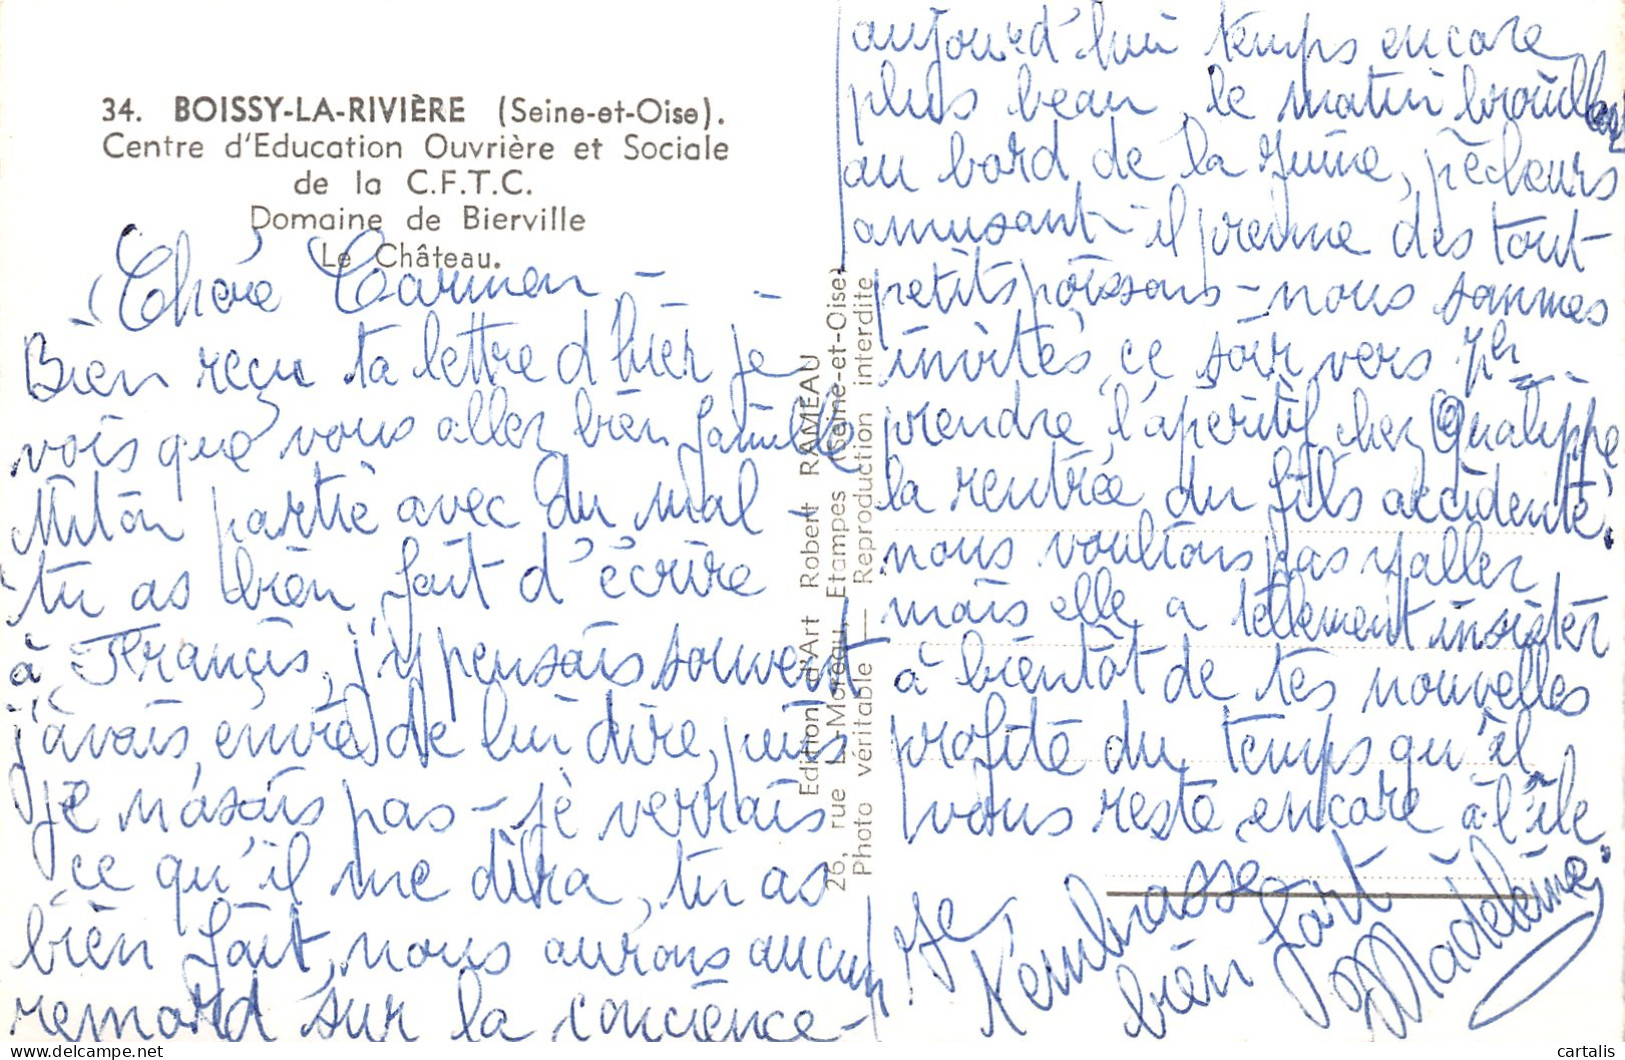 34. BOISSY-LA-RIVIÈRE (Seine-et-Oise).
Centre d'Education Ouvrière et Sociale
de la C.F.T.C.
Domaine de Bierville
Le Château.
Chère Carmen –
Bien reçu ta lettre d'hier je
vois que vous allez bien famille
Miton partie avec du mal –
tu as bien fait d'écrire
à Francis, j'y pensais souvent
j'avais envie de lui dire, puis
je n'osais pas – je verrais
ce qu'il me dira, tu as
bien fait, nous aurons aucun
remord sur la conscience –
Edition d'Art Robert RAMEAU
26, rue L.-Moreau, Etampes (Seine-et-Oise)
Photo véritable — Reproduction interdite
aujourd'hui temps encore
plus beau, le matin brouillard
au bord de la Juine, pêcheurs
amusant – il prenne des tout
petits poissons – nous sommes
invités ce soir vers 7h
prendre l'apéritif chez
la rentrée du fils accidenté.
nous voulions pas y aller
mais elle a tellement insister
à bientôt de tes nouvelles
profite du temps qu'il
vous reste encore à l'île
Je t'embrasse
bien fort
Madeleine
cartalis